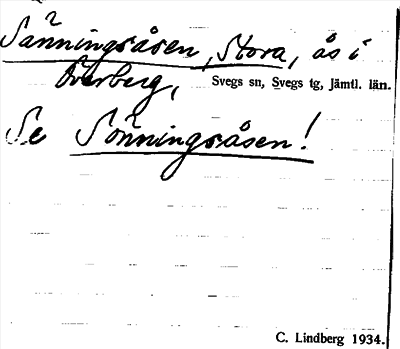 Sänningsåsen, Stora, ås i
Överberg, Svegs sn, Svegs tg, Jämtl. län.
Se Sönningsåsen!
C. Lindberg 1934.